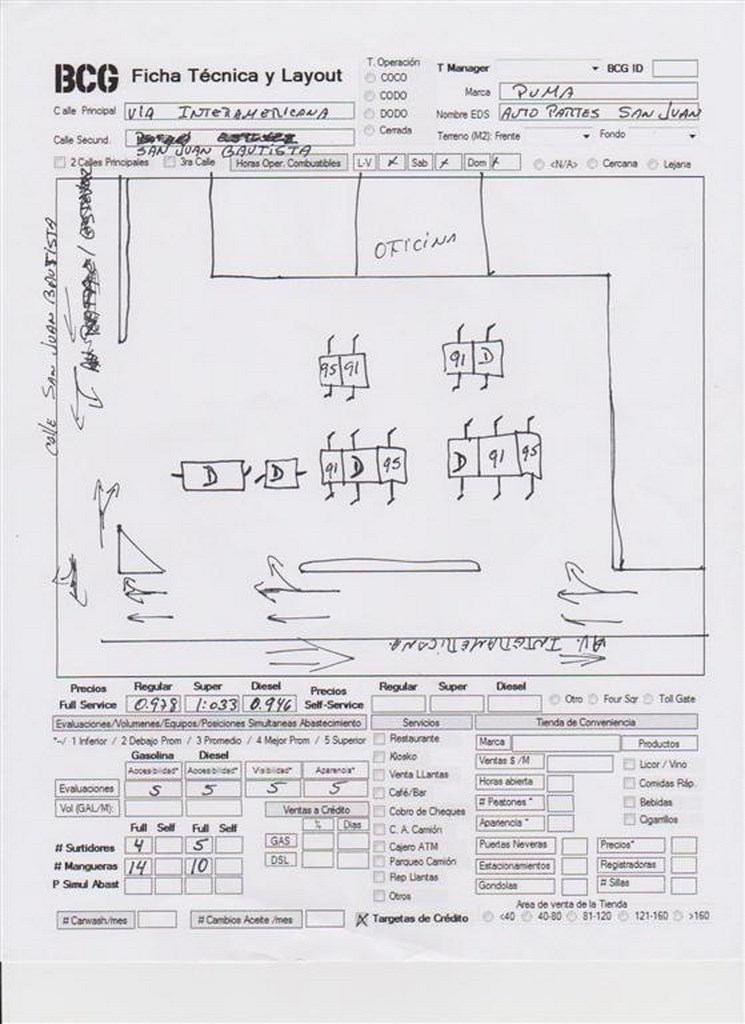 BCG Ficha Técnica y Layout
T. Operación
COCO
CODO
DODO
Cerrada
T Manager BCG ID
Marca PUMA
Calle Principal VIA INTERAMERICANA
Nombre EDS AUTO PARTES SAN JUAN
Calle Secund.
SAN JUAN BAUTISTA
Terreno (M2): Frente Fondo
2 Calles Principales 3ra Calle Horas Oper. Combustibles L-V x Sab x Dom x <N/A> Cercana Lejana
Calle SAN JUAN BAUTISTA
OFICINA
95 91
91 D
D D 91 D 95
D 91 95
AV. INTERAMERICANA
Precios Regular Super Diesel Precios Regular Super Diesel
Full Service 0.978 1.033 0.946 Self-Service Otro Four Sqr Toll Gate
Evaluaciones/Volumenes/Equipos/Posiciones Simultaneas Abastecimiento Servicios Tienda de Conveniencia
*-/ 1 Inferior / 2 Debajo Prom / 3 Promedio / 4 Mejor Prom / 5 Superior
Gasolina Diesel
Accesibilidad* Accesibilidad* Visibilidad* Apariencia*
Evaluaciones 5 5 5 5
Vol (GAL/M):
Ventas a Crédito
% Dias
GAS
DSL
Full Self Full Self
# Surtidores 4 5
# Mangueras 14 10
P Simul Abast
Restaurante
Kiosko
Venta LLantas
Café/Bar
Cobro de Cheques
C. A. Camión
Cajero ATM
Parqueo Camión
Rep Llantas
Otros
Marca Productos
Ventas $ /M Licor / Vino
Horas abierta Comidas Ráp.
# Peatones * Bebidas
Apariencia * Cigarrillos
Puertas Neveras Precios*
Estacionamientos Registradoras
Gondolas # Sillas
Area de venta de la Tienda
# Carwash/mes # Cambios Aceite /mes X Targetas de Crédito <40 40-80 81-120 121-160 >160